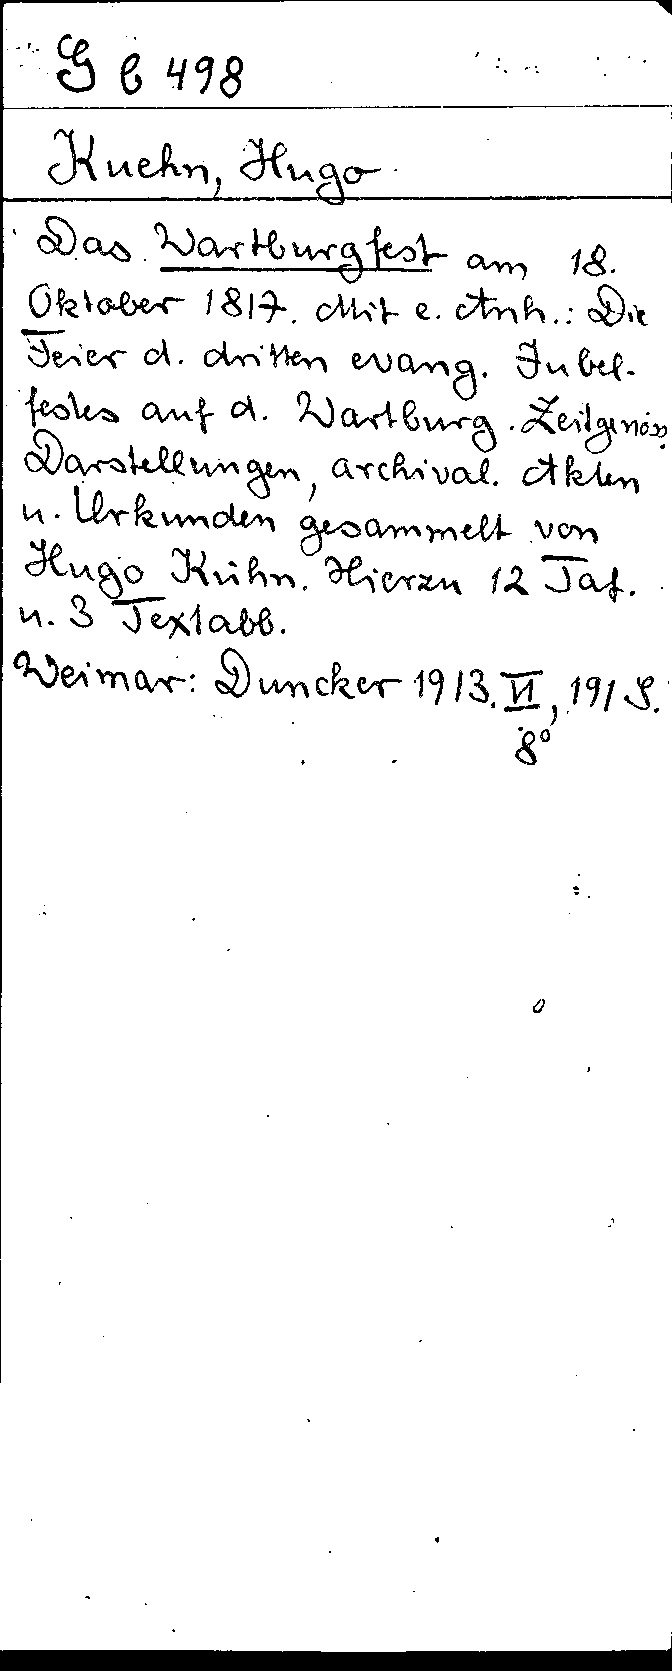 G b 498
Kuehn, Hugo
Das Wartburgfest am 18.
Oktober 1817. Mit e. Anh.: Die
Feier d. dritten evang. Jubel-
festes auf d. Wartburg. Zeitgenöss.
Darstellungen, archival. Akten
u. Urkunden gesammelt von
Hugo Kühn. Hierzu 12 Taf.
u. 3 Textabb.
Weimar: Duncker 1913. VI, 191 S.
8°